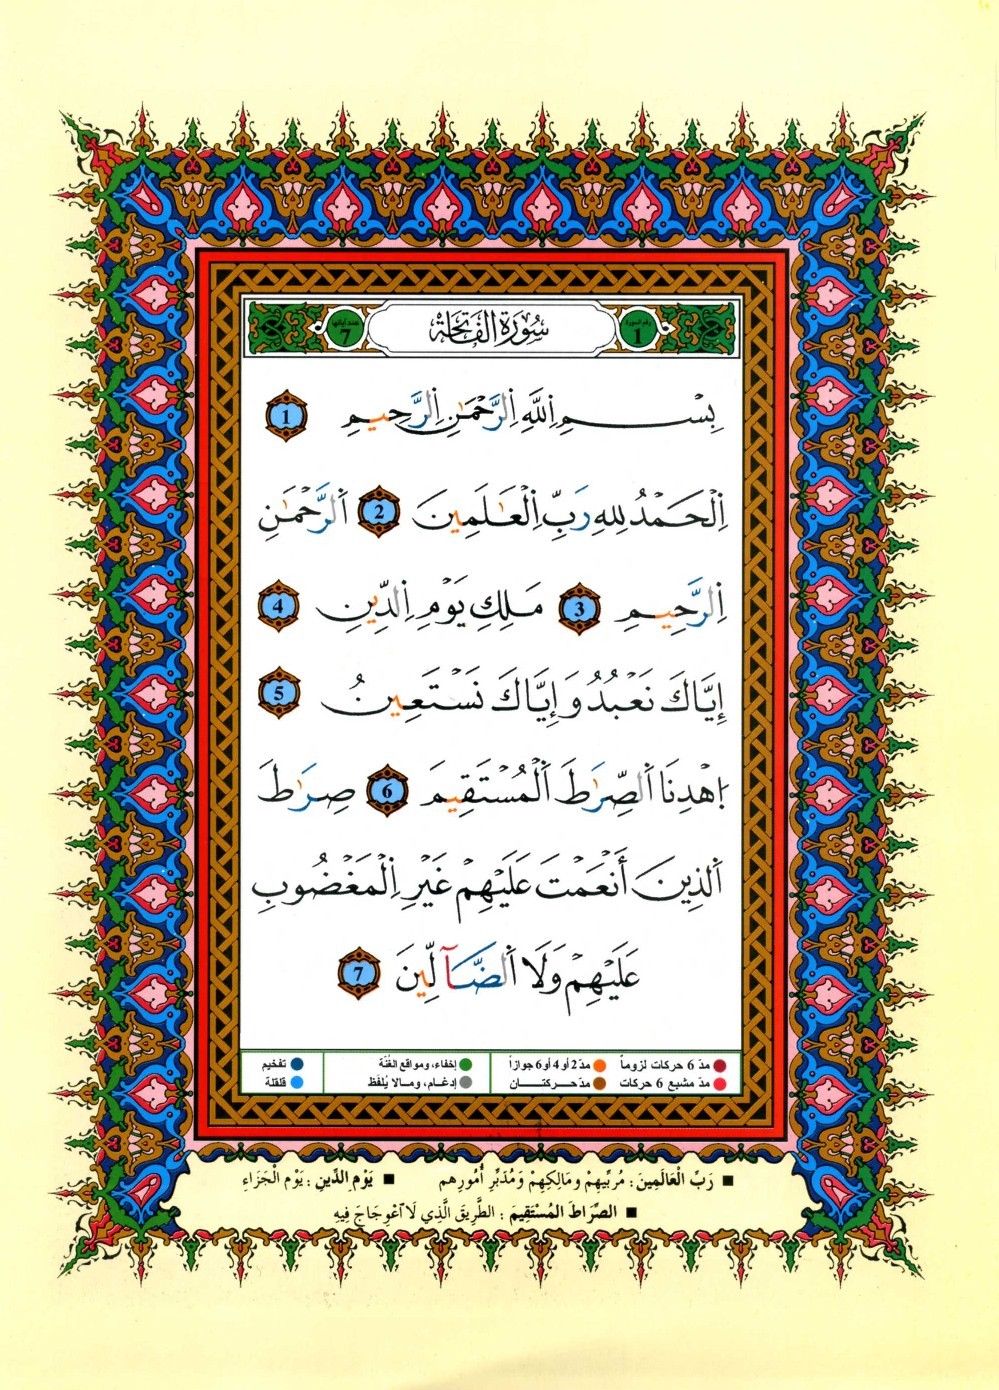 رقم السورة 1 سُورَةُ الفَاتِحَةِ عدد آياتها 7
بِسْمِ اِللَّهِ اِلرَّحْمَٰنِ اِلرَّحِيمِ 1
اِلْحَمْدُ لِلهِ رَبِّ اِلْعَٰلَمِينَ 2 اَلرَّحْمَٰنِ
اِلرَّحِيمِ 3 مَلِكِ يَوْمِ اِلدِّينِ 4
إِيَّاكَ نَعْبُدُ وَإِيَّاكَ نَسْتَعِينُ 5
اِهْدِنَا اَلصِّرَٰطَ اَلْمُسْتَقِيمَ 6 صِرَٰطَ
اَلذِينَ أَنْعَمْتَ عَلَيْهِمْ غَيْرِ اِلْمَغْضُوبِ
عَلَيْهِمْ وَلَا اَلضَّآلِّينَ 7
مدّ 6 حركات لزوماً مدّ 2 أو 4 أو 6 جوازاً إخفاء، ومواقع الغُنَّة تفخيم
مدّ مشبع 6 حركات مدّ حركتـــان إدغام، ومـالا يُلفَظ قلقلة
■ رَبِّ الْعَالَمِينَ : مُرَبِّيهِمْ وَمَالِكِهِمْ وَمُدَبِّرِ أُمُورِهِم ■ يَوْمِ الدِّينِ : يَوْمِ الْجَزَاءِ
■ الصِّرَاطَ الْمُسْتَقِيمَ : الطَّرِيقَ الَّذِي لَا اعْوِجَاجَ فِيهِ